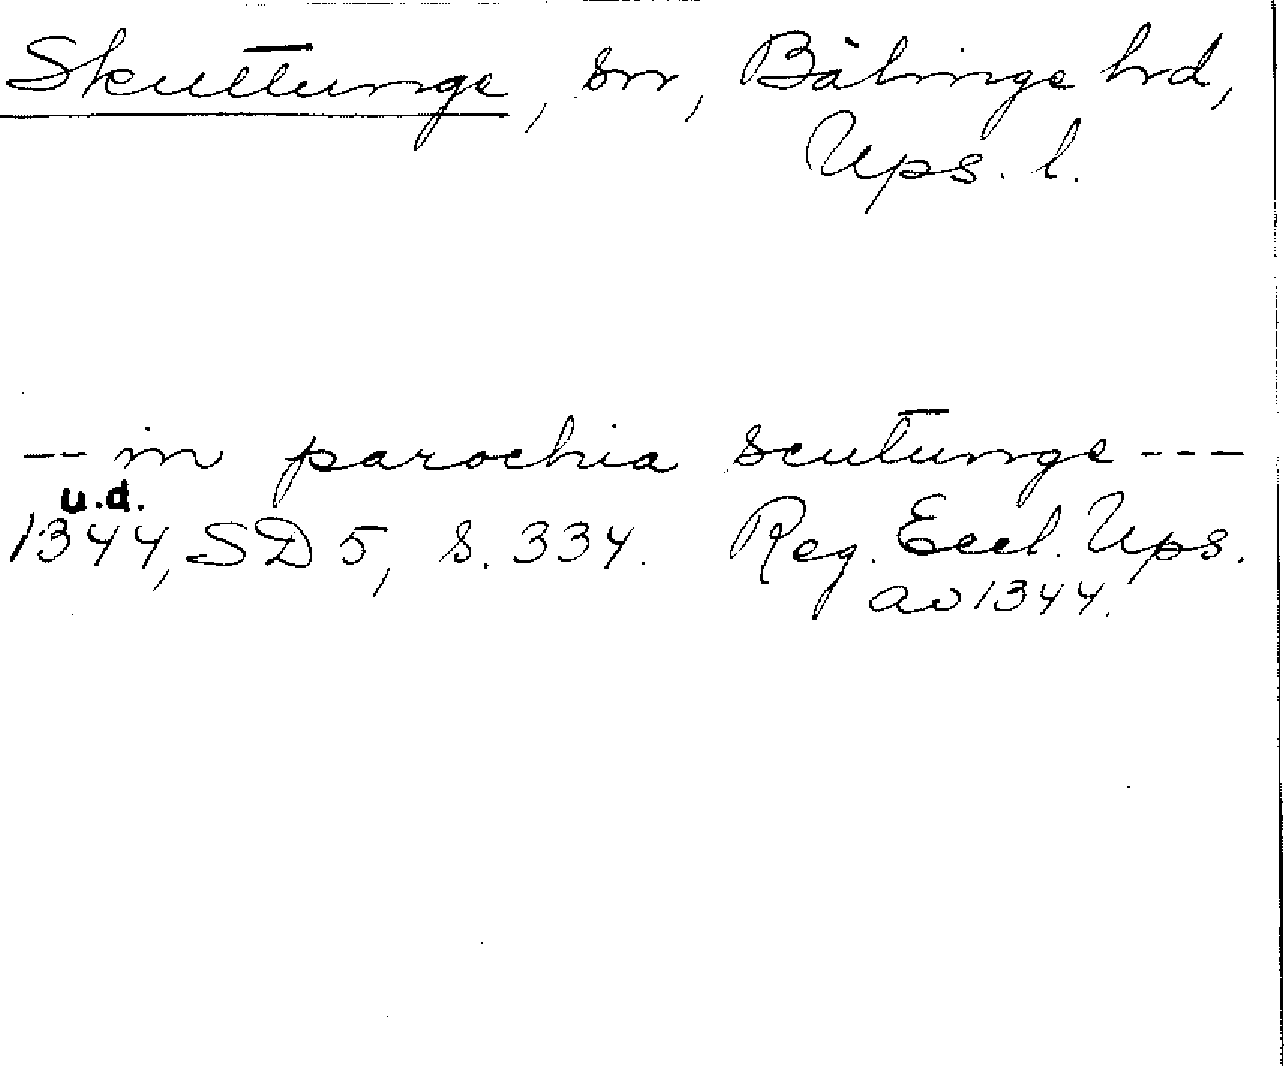 Skuttunge, sn, Bälinge hrd,
Ups. l.
-- in parochia scutunge ---
u.d.
1344, SD 5, s. 334. Reg. Eccl. Ups.
ao 1344.